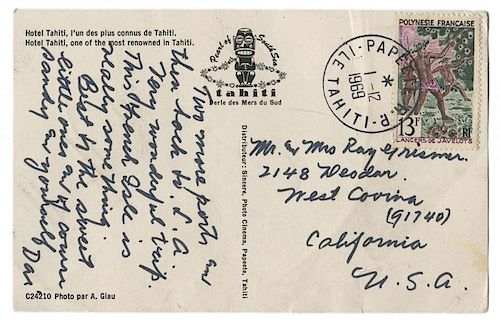 Hotel Tahiti, l'un des plus connus de Tahiti.
Hotel Tahiti, one of the most renowned in Tahiti.
Two more ports and
then back to L.A.
Very wonderful trip.
This French Isle is
really something.
But to the sweet
little ones
Sandy and yourself
Dan
C24210 Photo par A. Giau
Pearl of South Sea
tahiti
Perle des Mers du Sud
Distributeur: Sincere, Photo Cinema, Papeete, Tahiti
ILE-TAHITI
1-12
1969
POLYNESIE FRANÇAISE
13F
RF
LANCERS DE JAVELOTS
Mr. & Mrs Ray Grismer
2148 Deodar
West Covina
(91740)
California
U.S.A.